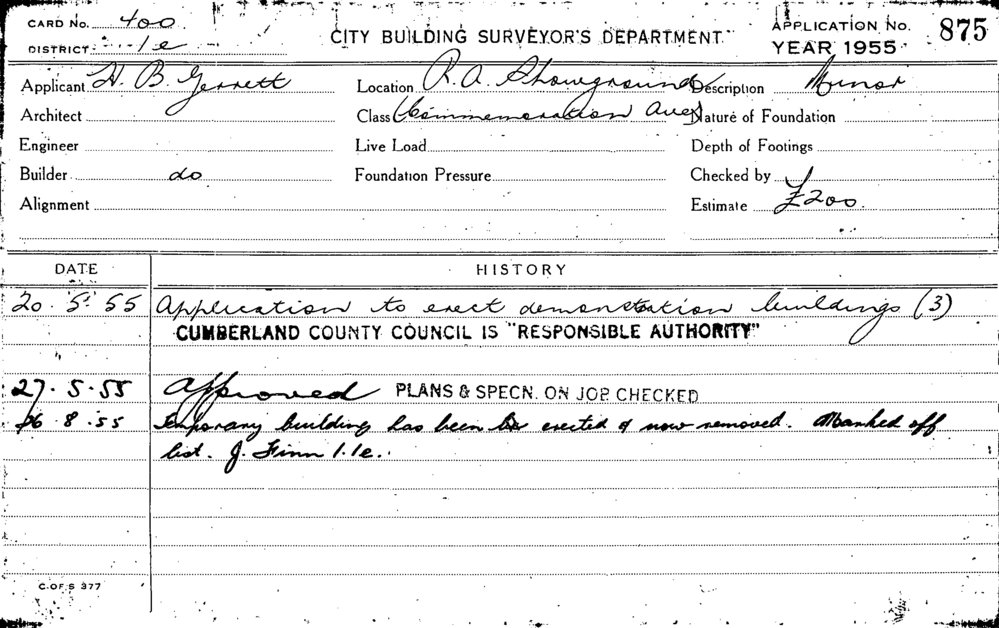 CARD No. 400
DISTRICT 1e
CITY BUILDING SURVEYOR'S DEPARTMENT
APPLICATION No. 875
YEAR 1955
Applicant H. B. Gerrett Location R. A. Showground Description Minor
Architect Class (Commemoration Ave) Nature of Foundation
Engineer Live Load Depth of Footings
Builder do Foundation Pressure Checked by
Alignment Estimate £200
DATE HISTORY
20.5.55 Application to erect demonstration buildings (3)
CUMBERLAND COUNTY COUNCIL IS "RESPONSIBLE AUTHORITY"
27.5.55 Approved PLANS & SPECN. ON JOB CHECKED
26.8.55 Temporary building has been erected & now removed. Marked off
list. J. Finn 1.1e.
C. OF S 377